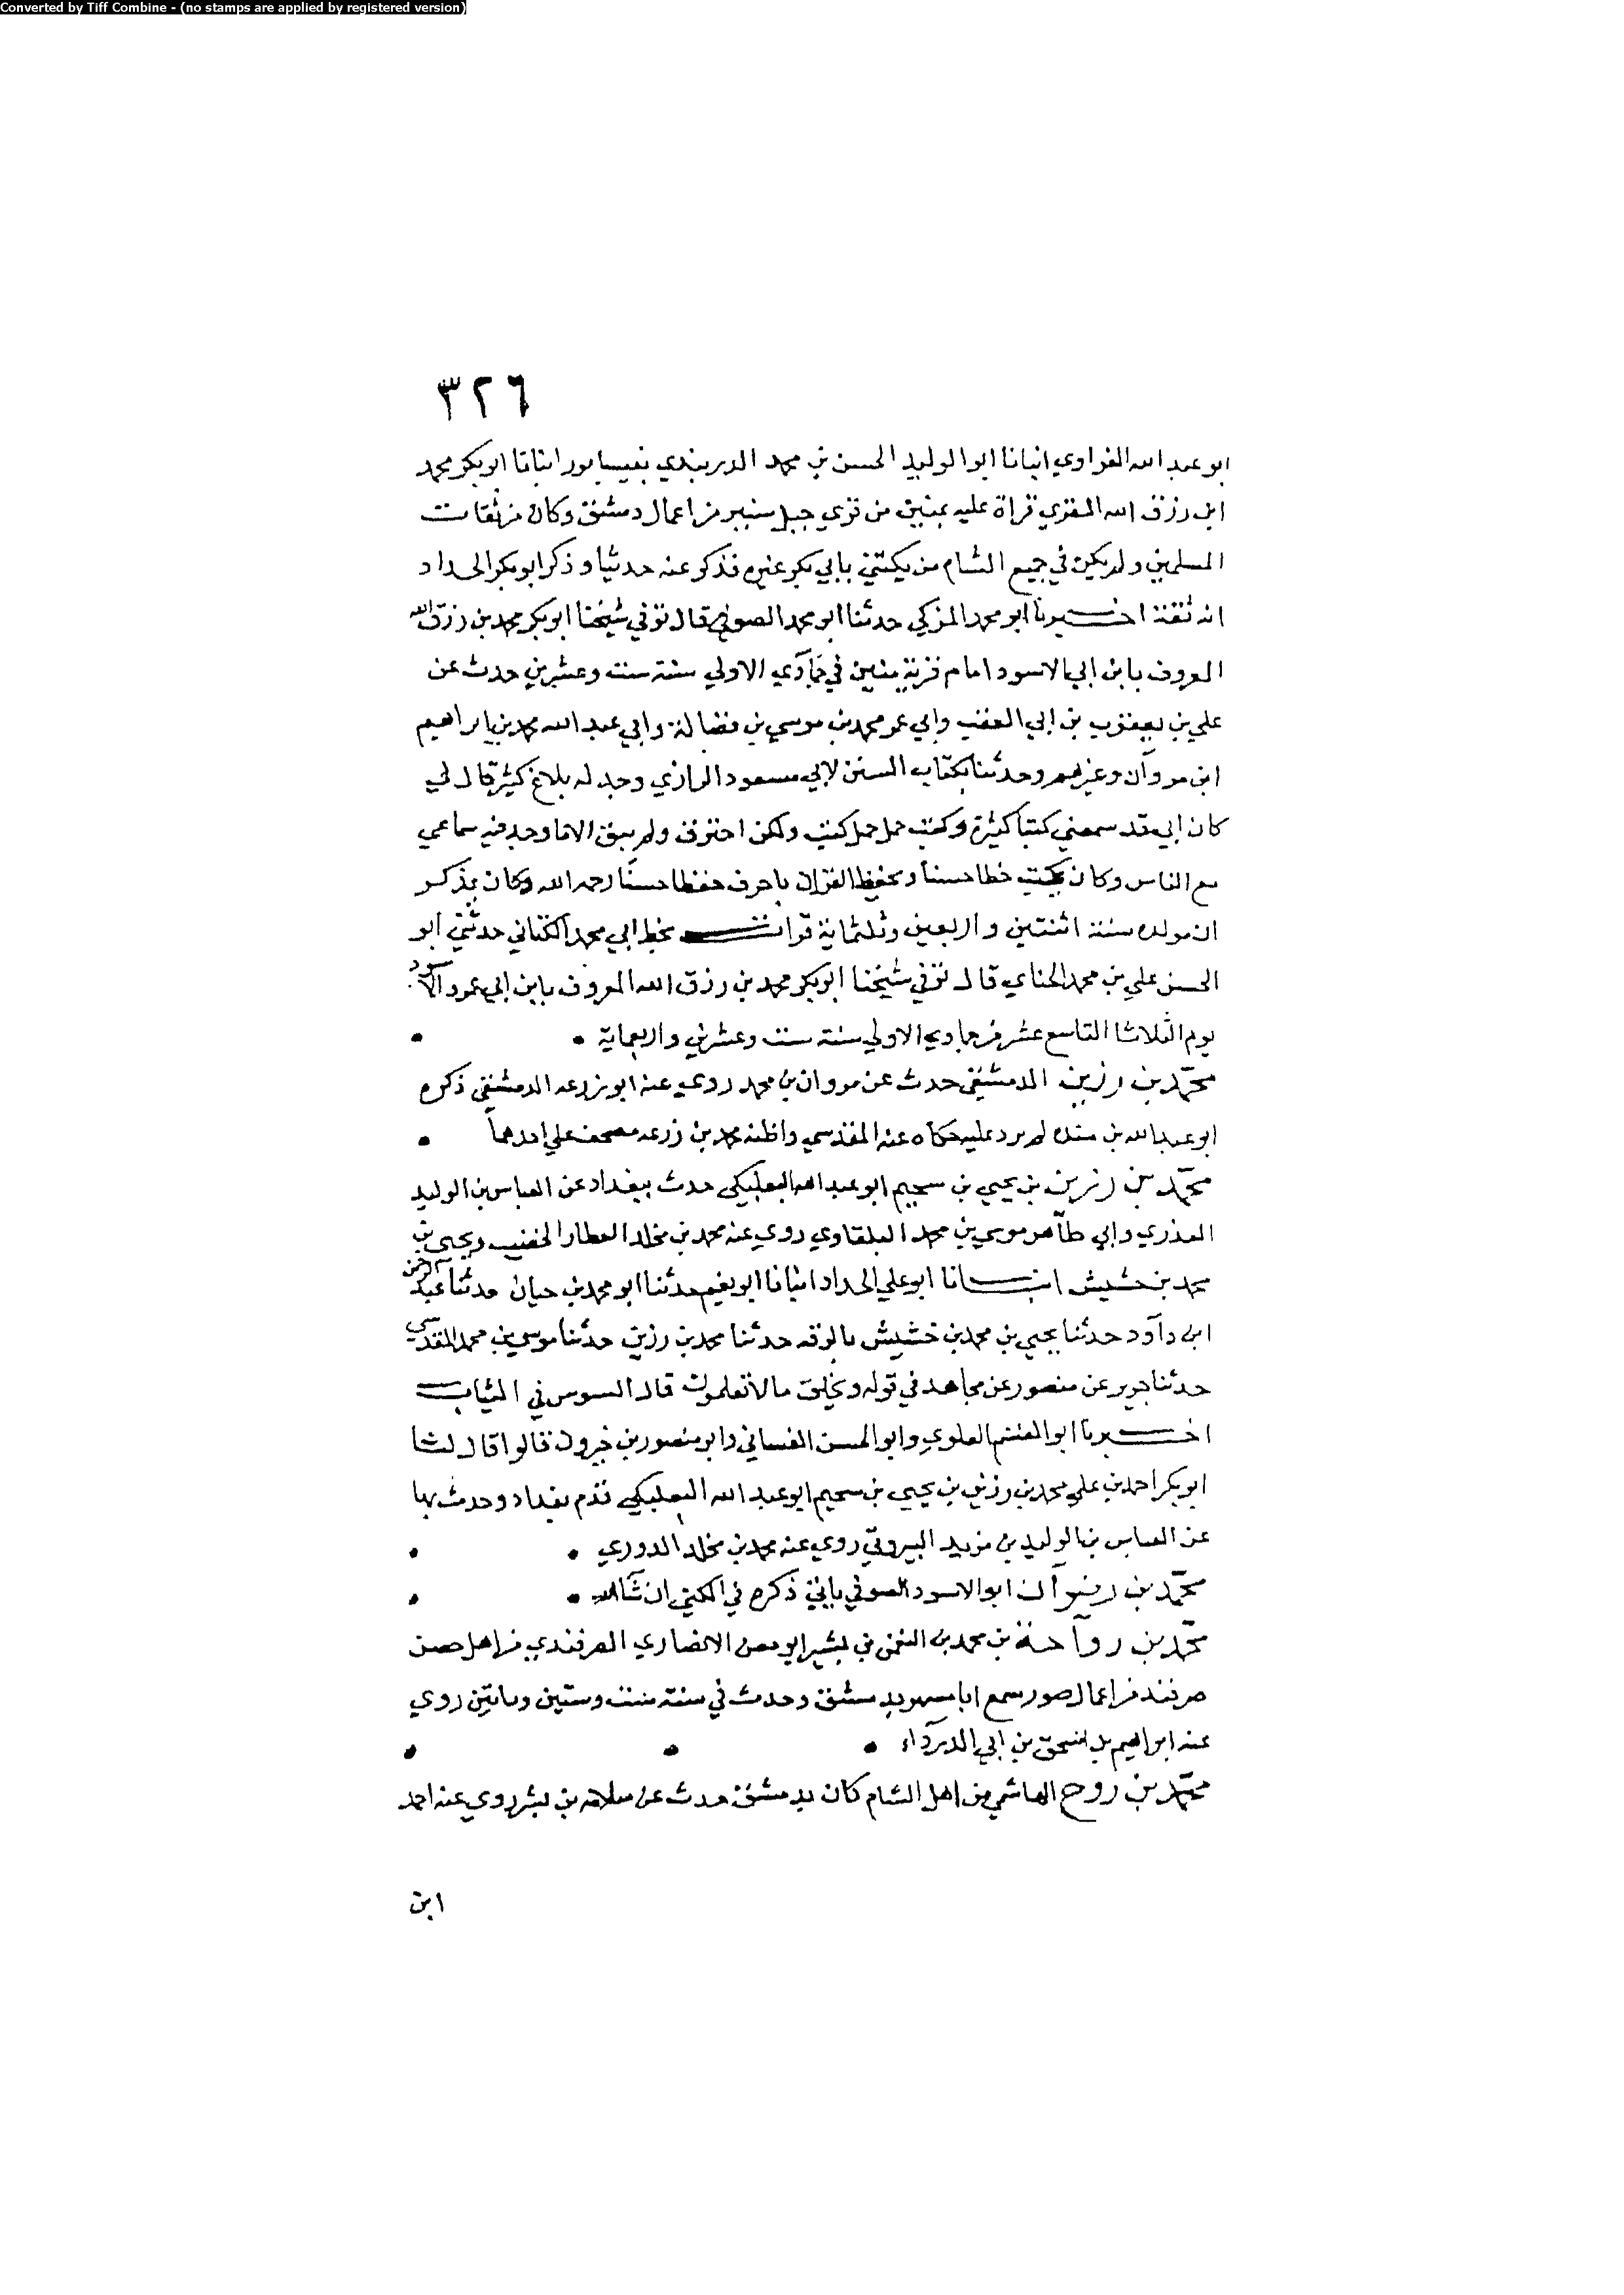 Converted by Tiff Combine - (no stamps are applied by registered version)
٣٢٦
ابو عبد الله الفراوي انبانا ابو الوليد الحسن بن محمد الدربندي بنيسابور انبانا ابو بكر محمد
ابن رزق الله المقري قراة عليه بمنين من قري جبل سنير من اعمال دمشق وكان من ثقات
المسلمين ولم يكن في جميع الشام من يكتني بابي بكر غيره فذكر عنه حديثا وذكر ابو بكر الحداد
انه ثقة اخبرنا ابو محمد المزكي حدثنا ابو محمد الصوفي قال توفي شيخنا ابو بكر محمد بن رزق الله
المعروف بابن ابي الاسود امام قرية منين في جمادي الاولي سنة ست وعشرين حدث عن
علي بن يعقوب بن ابي العقب وابي عمر محمد بن موسي بن فضالة وابي عبد الله محمد بن ابراهيم
ابن مروان وغيرهم وحدثنا بكتاب السنن لابي مسعود الرازي وجد له بلاغ كثير قال لي
كان ابي قد سمعني كتبا كثيرة وكتب حمل حمل كتب ولكن احترق ولم يبق الا ما وجد فيه سماعي
مع الناس وكان يكتب خطا حسنا ويحفظ القران باحرف حفظا حسنا رحمه الله وكان يذكر
ان مولده سنة اثنتين واربعين وثلثماية قرات بخط ابي محمد الكتاني حدثني ابو
الحسن علي بن محمد الحناي قال توفي شيخنا ابو بكر محمد بن رزق الله المعروف بابن ابي عمرو الاسود
يوم الثلاثا التاسع عشر من جمادي الاولي سنة ست وعشرين واربعماية
محمد بن رزين الدمشقي حدث عن مروان بن محمد روي عنه ابو زرعه الدمشقي ذكره
ابو عبد الله بن منده لم يرد عليه حكاه عنه المقدسي واظنه محمد بن زرعه مصحف علي احدهما
محمد بن رزين بن يحيي بن سحيم ابو عبد الله البعلبكي حدث ببغداد عن العباس بن الوليد
العذري وابي طاهر موسي بن محمد البلقاوي روي عنه محمد بن مخلد العطار الخضيب ويحيي بن
محمد بن خشيش انبانا ابو علي الحداد انبانا ابو نعيم حدثنا ابو محمد بن حيان حدثنا عبد الرحمن
ابن داود حدثنا يحيي بن محمد بن خشيش بالرقه حدثنا محمد بن رزين حدثنا موسي بن محمد المقدسي
حدثنا جرير عن منصور عن مجاهد في قوله ويخلق ما لا تعلمون قال السوس في الثياب
اخبرنا ابو القسم العلوي وابو الحسن الغساني وابو منصور بن خيرون قالوا قال لنا
ابو بكر احمد بن علي محمد بن رزين بن يحيي بن سحيم ابو عبد الله البعلبكي قدم بغداد وحدث بها
عن العباس بن الوليد بن مزيد البيروتي روي عنه محمد بن مخلد الدوري
محمد بن رضوان ابو الاسود الصوفي ياتي ذكره في الكني ان شا الله
محمد بن رواحة بن محمد بن النعمن بن بشير ابو معن الانصاري الصرفندي من اهل حصن
صرفند من اعمال صور سمع ابا مسهر بدمشق وحدث في سنة ست وستين وماتين روي
عنه ابراهيم بن اسحق بن ابي الدرداء
محمد بن روح الهاشمي من اهل الشام كان بدمشق حدث عن سلامه بن بشر روي عنه احمد
ابن